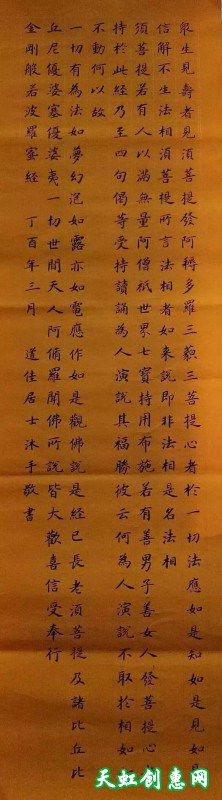 眾生見壽者見須菩提發阿耨多羅三藐三菩提心者於一切法應如是知如是見如是
信解不生法相須菩提所言法相者如來說即非法相是名法相
須菩提若有人以滿無量阿僧祇世界七寶持用布施若有善男子善女人發菩提心者
持於此經乃至四句偈等受持讀誦為人演說其福勝彼云何為人演說不取於相如如
不動何以故
一切有為法如夢幻泡如露亦如電應作如是觀佛說是經已長老須菩提及諸比丘比
丘尼優婆塞優婆夷一切世間天人阿脩羅聞佛所說皆大歡喜信受奉行
金剛般若波羅蜜經 丁酉年三月 道佳居士沐手敬書
天虹创惠网